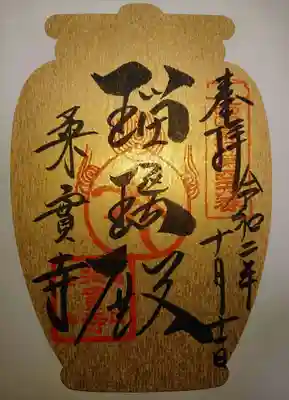 奉拝
令和二年
十月十一日
瑠璃殿
桑實寺